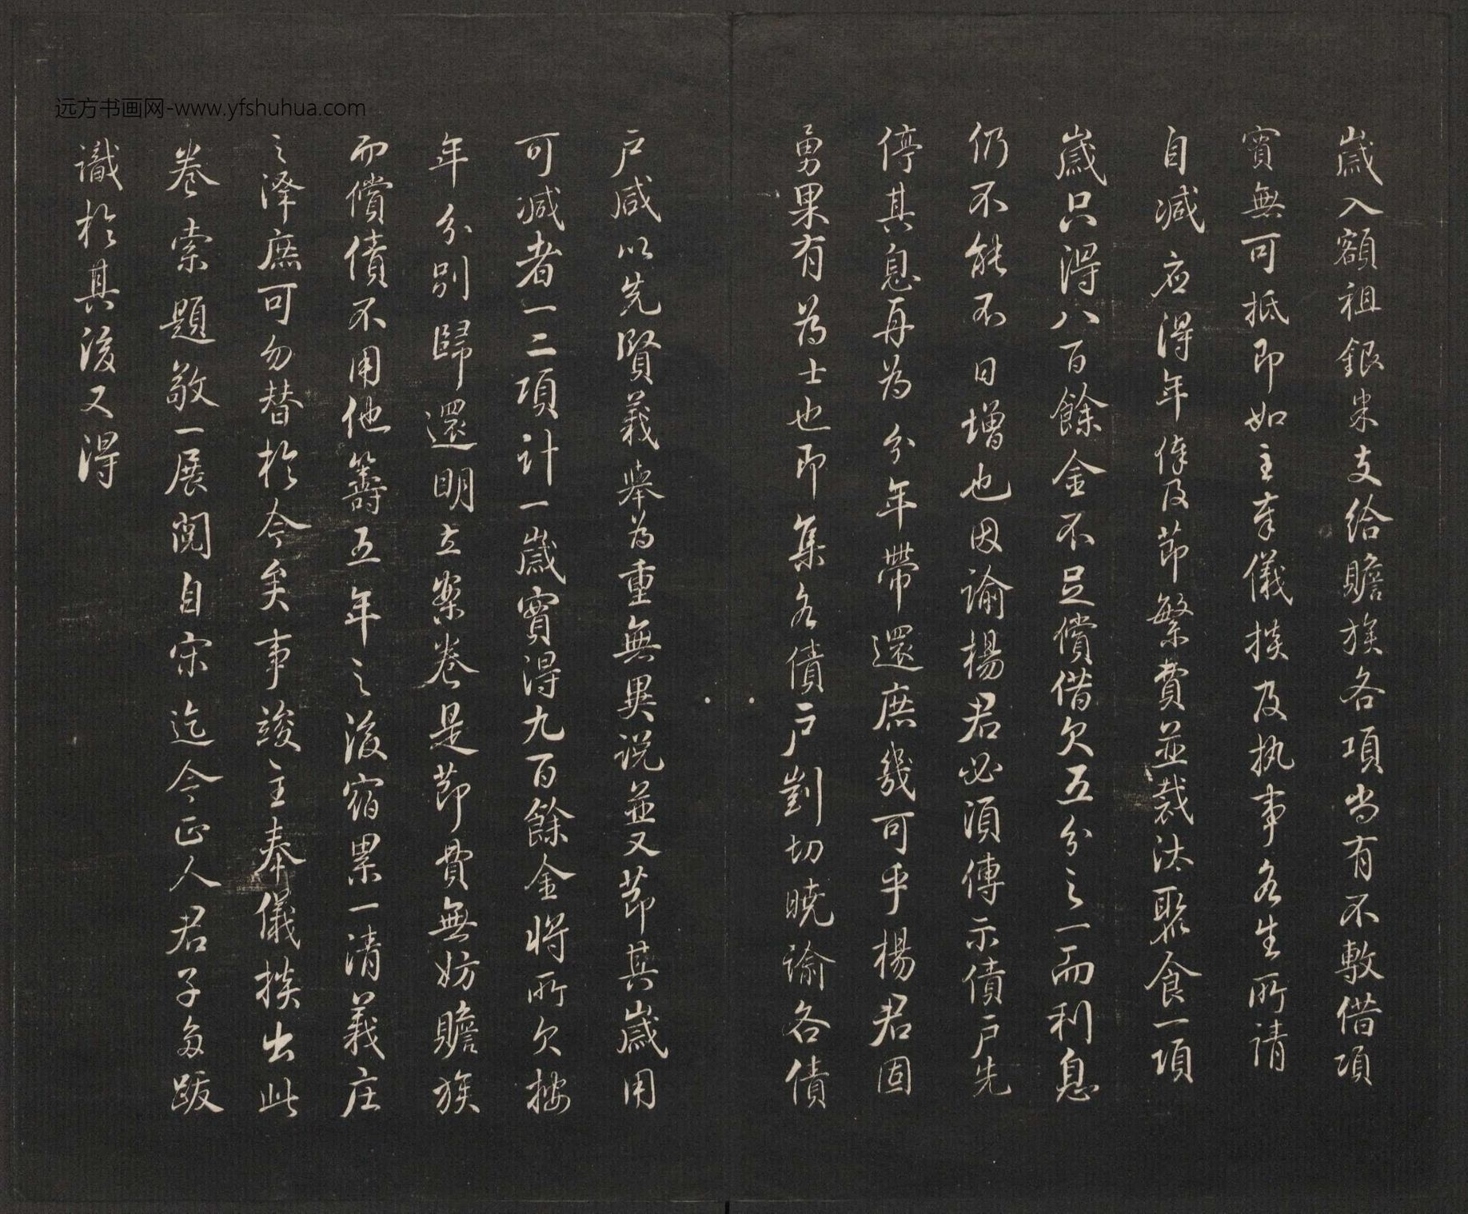 远方书画网-www.yfshuhua.com
歲入額租銀米支給贍族各項尚有不敷借項
實無可抵即如主奉儀掞及执事各生所請
自減应得年俸及節繁費並裁汰聚食一項
歲只得八百餘金不足償借欠五分之一而利息
仍不能不日增也因諭楊君必須傳示債户先
停其息再為分年帶還庶幾可乎楊君固
勇果有為士也即集各債户剴切曉諭各債
户咸以先賢義舉為重無異说並又節其歲用
可減者一二項計一歲實得九百餘金將所欠按
年分别歸還明立案卷是節費無妨贍族
而償債不用他籌五年之後宿累一清義庄
之泽庶可勿替於今矣事竣主奉儀掞出此
卷索題敬一展閱自宋迄今正人君子多跋
識於其後又得